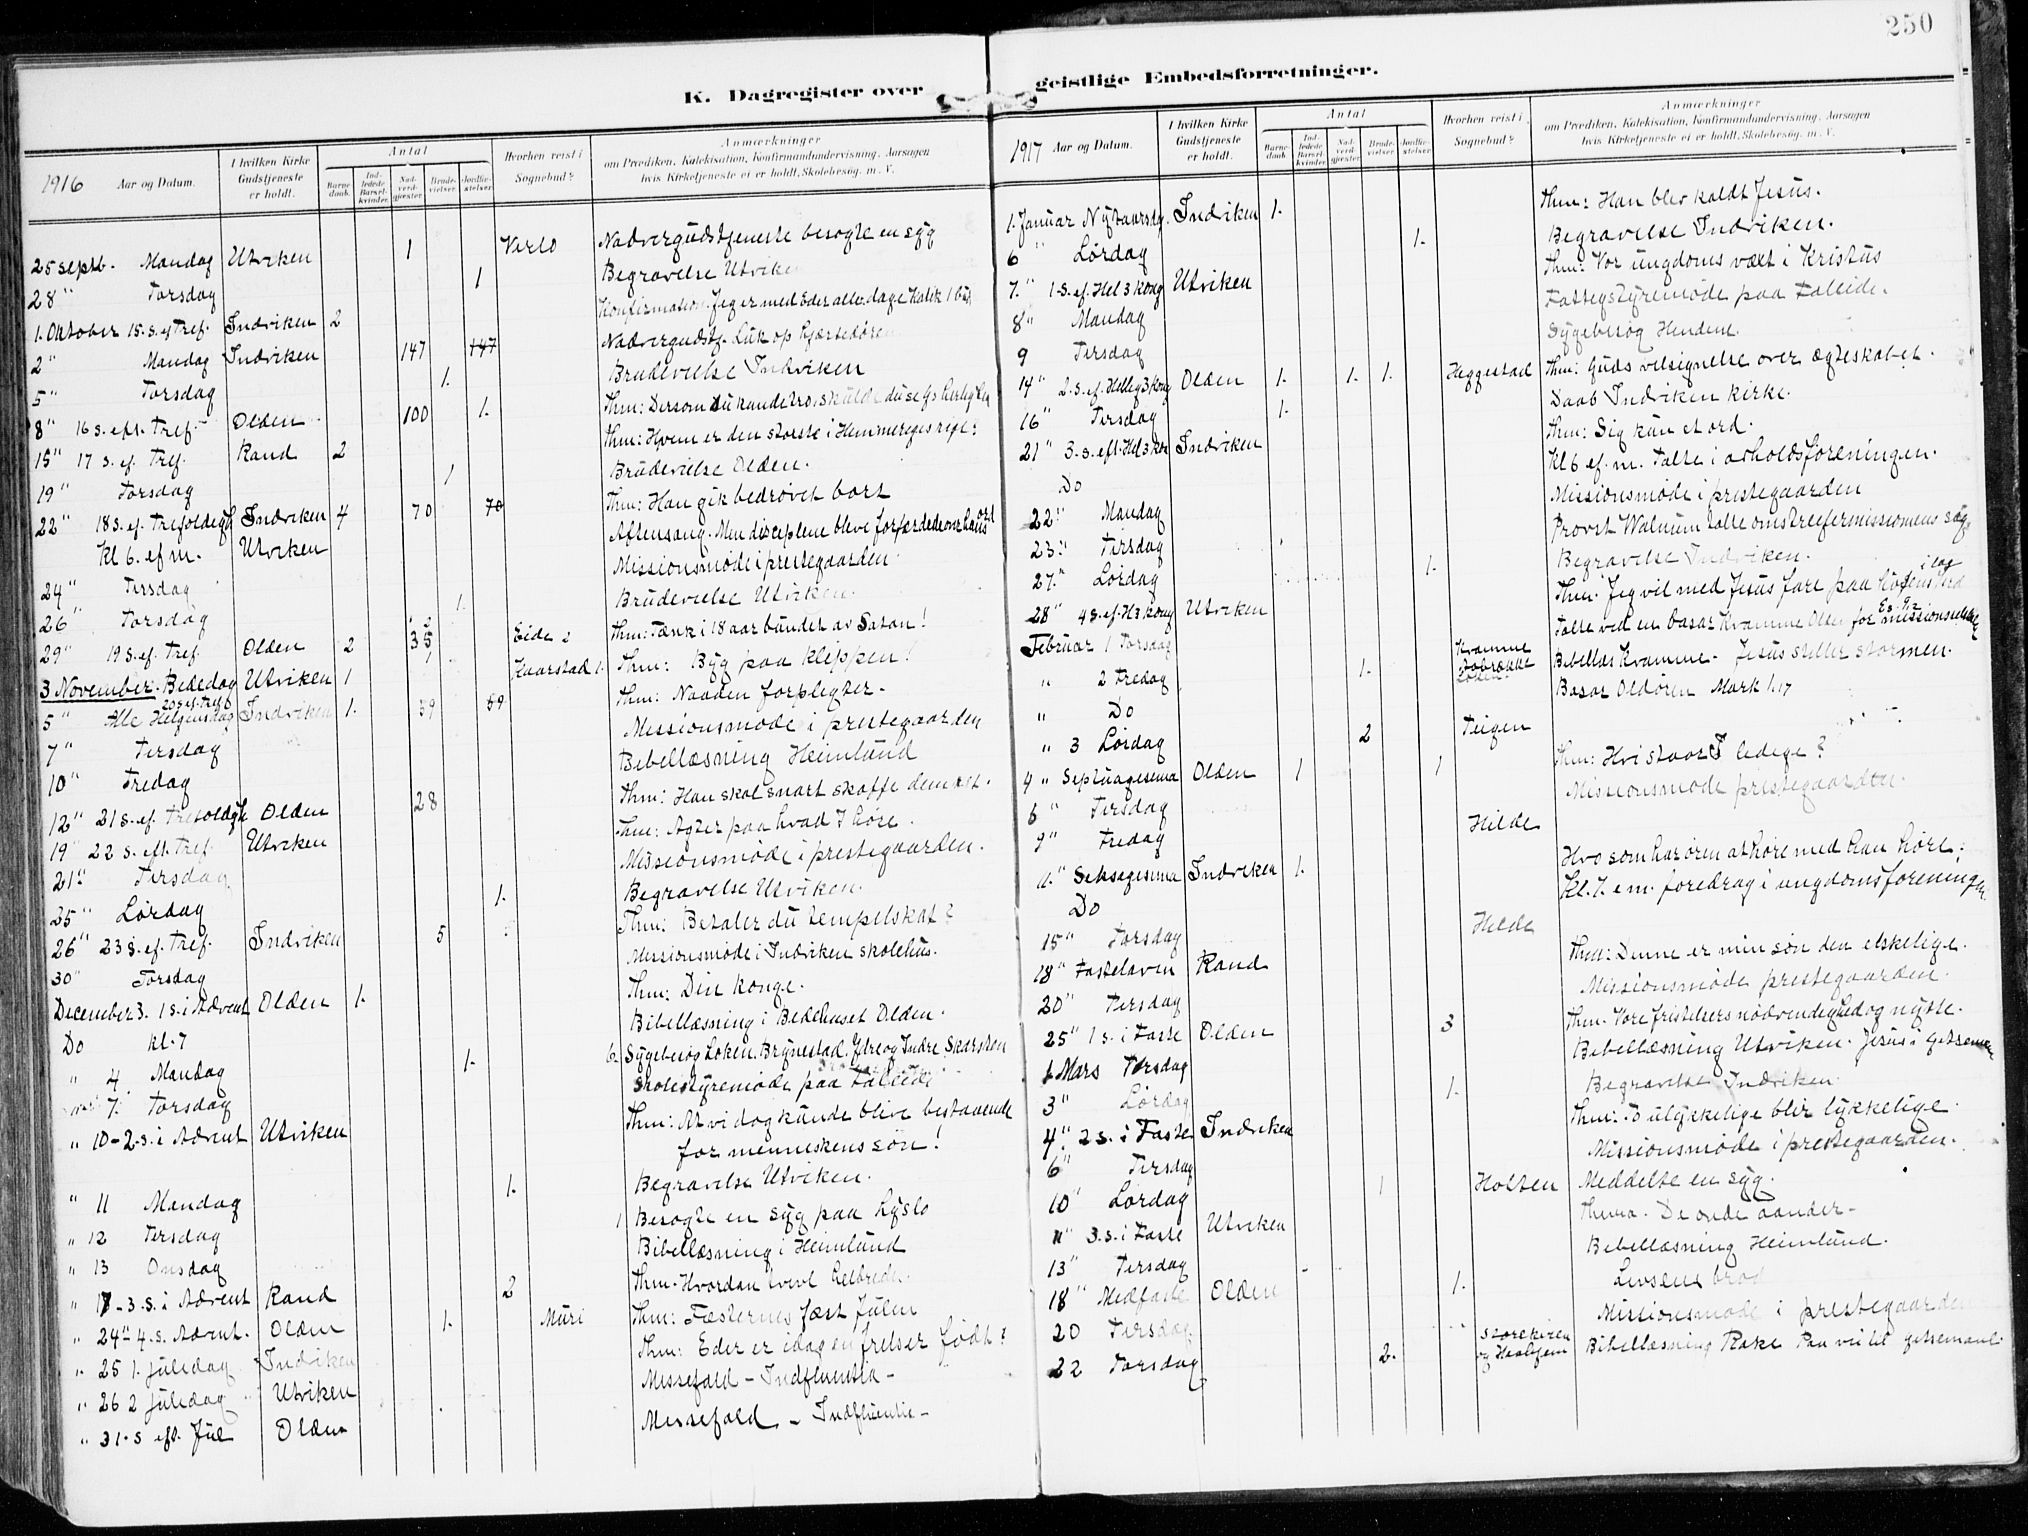 250
K. Dagregister over
geistlige Embedsforretninger.
1916 Aar og Datum.
I hvilken Kirke Gudstjeneste er holdt.
Antal
Barnedaab.
Indledede Barselkvinder.
Nadverdgjester
Brudevielser.
Jordfæstelser.
Hvorhen reist i Sognebud?
Anmærkninger
om Prædiken, Katekisation, Konfirmandundervisning, Aarsagen
hvis Kirketjeneste ei er holdt, Skolebesøg. m. V.
25 septb. Mandag Utviken 1 Nadvergudstjeneste besøgte en syg
28 " Torsdag 1 Begravelse Utviken
1. Oktober 15. s. ef Tref. Indviken 2 Konfirmation. Jeg er med Eder alle dage
2 " Mandag Indviken 147 147 Nadvergudstj. Luk op hjertedøren
5 " Torsdag 1. Brudevielse Indviken
8 " 16 s. eft. Tref. Olden 100 1. Thm: Dersom du kunde tro, skulde du se
15 " 17 s. ef. Tref. Rand 2 Thm: Hvem er den største i Himmeriges rige?
19 " Torsdag 1 Brudevielse Olden.
22 " 18 s. ef. Trefoldigh Indviken 4 70 70 Thm: Han gik bedrøvet bort
Kl 6. ef m. Utviken Aftensang. Men disciplene bleve forfærdede over hans ord
24 " Tirsdag Missionsmøde i prestegaarden.
26 " Torsdag 1. Brudevielse Utviken.
29 " 19 s. ef. Tref. Olden 2 35 Eide 2 Thm: Tænk i 18 aar bundet av Satan!
3 November. Bededag Utviken 1 Kaarstad 1. Thm: Byg paa kleppen!
5 " Alle Helgensdag 20 s. ef. Tref Indviken 1. 59 59 Thm: Naaden forpligter.
7 " Tirsdag Missionsmøde i prestegaarden
10 " Fredag Bibellæsning Heimlund
12 " 21 s. ef. Trefoldigh Olden 28 Thm: Han skal snart skaffe dem ret.
19 " 22 s. eft. Tref. Utviken Thm: Agter paa hvad I høre.
21 " Tirsdag Missionsmøde i prestegaarden.
25 " Lørdag 1. Begravelse Utviken.
26 " 23 s. ef. Tref. Indviken 5 Thm: Betaler du tempelskat?
30 " Torsdag Missionsmøde i Indviken skolehus.
December 3. 1 s. i Advent Olden 1. Thm: Din konge.
Do kl. 7 Bibellæsning i Bedehuset Olden.
" 4 Mandag 1. 6. Sygebesøg Loken. Brynestad. Ytre og Indre Skarsten
7. Torsdag Skolestyremøde paa Faleide
" 10 - 2. s. i Advent Utviken Thm: At vi dog kunde blive bestaaende
for menneskens søn!
" 11 Mandag 1. Begravelse Utviken.
" 12 Tirsdag 1 Besøgte en syg paa
" 13 Onsdag Bibellæsning i Heimlund
" 17 - 3. s. i Advent Rand 2 Thm. Hvordan tvivl helbredes
" 24 4. s. Advent. Olden 1. Muri Thm: Festernes fest Julen
" 25 1. juledag Indviken Thm: Eder er idag en frelser født!
" 26 2 juledag Utviken Messefald - Indfluentia -
" 31. s eft. Jul Olden Messefald - Indfluentia -
1917 Aar og Datum.
I hvilken Kirke Gudstjeneste er holdt.
Antal
Barnedaab.
Indledede Barselkvinder.
Nadverdgjester
Brudevielser.
Jordfæstelser.
Hvorhen reist i Sognebud?
Anmærkninger
om Prædiken, Katekisation, Konfirmandundervisning, Aarsagen
hvis Kirketjeneste ei er holdt, Skolebesøg. m. V.
1. Januar Nytaarsdg. Indviken 1. Thm: Han blev kaldt Jesus.
6 " Lørdag 1. Begravelse Indviken.
7. " 1. s. ef. Hel 3 kong Utviken Thm: Vor ungdoms vækst i Kristus
8 " Mandag Fattigstyremøde paa Faleide.
9 Tirsdag Sygebesøg Hendene.
14 " 2. s. ef. Hellig 3 kong Olden 1. 1. 1. Heggestad Thm: Guds velsignelse over ægteskabet.
16 " Tirsdag 1. Daab Indviken kirke.
21 " 3. s. eft. Hel 3 kon Indviken Thm: Sig kun et ord.
Do Kl 6 ef. m. Talte i avholdsforeningen.
22 " Mandag Missionsmøde i prestegaarden
23 " Tirsdag Provst Walnum talte om streifermissionens sag.
27. " Lørdag 1. Begravelse Indviken.
28 " 4 s. ef. H 3 kong Utviken Thm: Jeg vil med Jesus fare paa livsens færd
Februar 1 Torsdag Kvamme Talte ved en basar Kvamme Olden for missionen
" 2 Fredag 1. Bibellæs Kvamme - Jesus stiller stormen.
" Do Basar Oldøren Mark 1. 17
" 3 Lørdag 2 Teigen
4 " Septuagesima Olden 1 1 Thm: Hvi staar I ledige?
6 " Tirsdag Missionsmøde prestegaarden.
9 " Fredag Hilde
11. " Seksagesima Indviken 1. Hvo som har øren at høre med han høre;
Do Kl. 7. e m. foredrag i ungdomsforeningen
15 " Torsdag Hilde
18 " Fastelaven Rand Thm: Denne er min søn den elskelige.
20 " Tirsdag Missionsmøde prestegaarden.
25 " 1 s. i Faste Olden 3 Thm. Vore fristelsers nødvendighed og nytte.
1 Mars Torsdag Bibellæsning Utviken. Jesus i Getsemane
3 " Lørdag 1. Begravelse Indviken
4. " 2 s. i Faste Indviken Thm: To ulykkelige blir lykkelige.
6 " Tirsdag Missionsmøde i prestegaarden.
10 " Lørdag 1 Holten Meddelte en syg.
11 " 3. s. i Faste Utviken Thema. De onde aander -
13 " Tirsdag Bibellæsning Heimlund.
18 " Midfaste Olden 1. Livsens brød
20 Tirsdag Missionsmøde i prestegaarden
22 Torsdag 2. Bibellæsning Rake